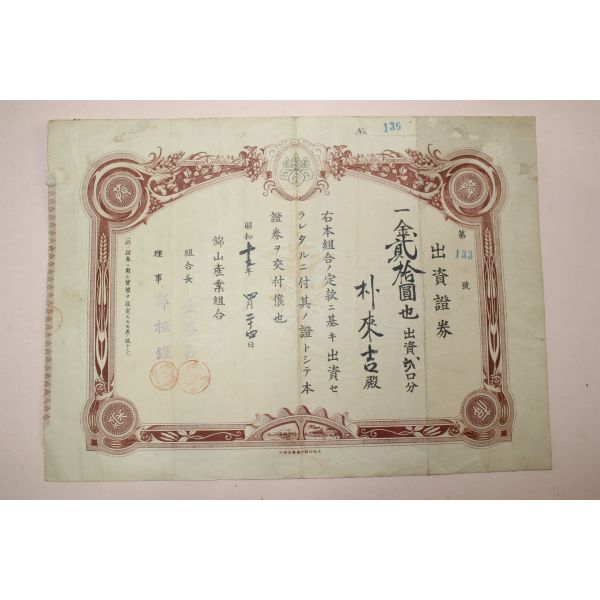 No. 136
出資證券
第133號
一金貳拾圓也 出資貳口分
朴來吉殿
右本組合ノ定款ニ基キ出資セ
ラレタルニ付其ノ證トシテ本
證券ヲ交付候也
昭和十五年四月二四日
錦山産業組合
組合長
理事